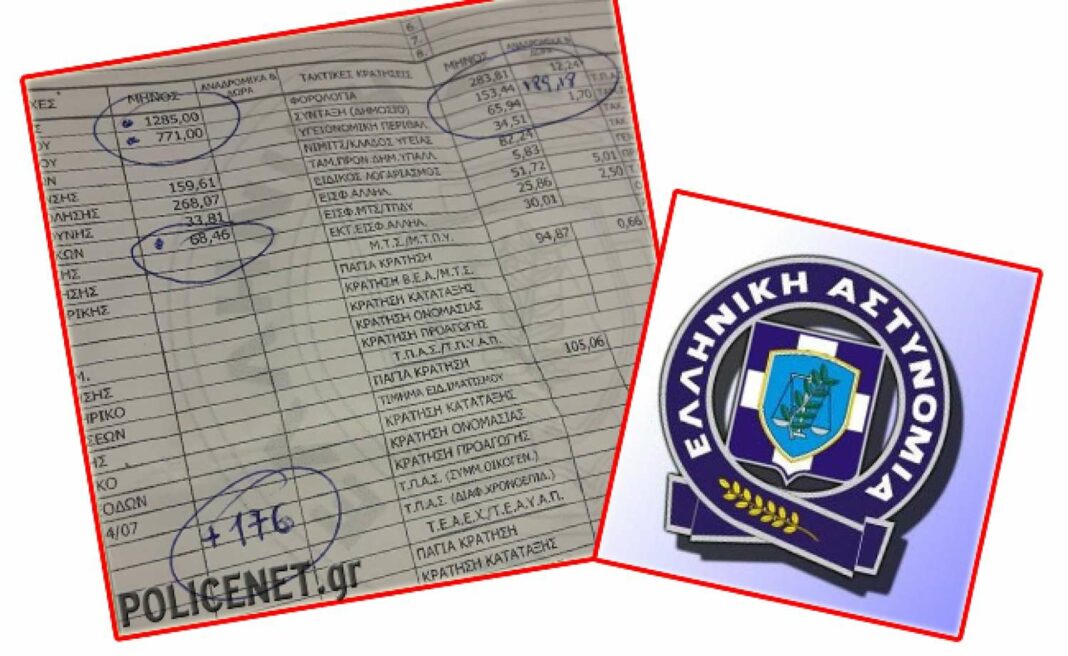 6.
7.
8.
ΜΗΝΟΣ ΑΝΑΔΡΟΜΙΚΑ & ΔΩΡΑ ΤΑΚΤΙΚΕΣ ΚΡΑΤΗΣΕΙΣ ΜΗΝΟΣ ΑΝΑΔΡΟΜΙΚΑ & ΔΩΡΑ
1285,00 ΦΟΡΟΛΟΓΙΑ 283,81 12,24
771,00 ΣΥΝΤΑΞΗ (ΔΗΜΟΣΙΟ) 153,44 189,18
ΥΓΕΙΟΝΟΜΙΚΗ ΠΕΡΙΘΑΛ. 65,94 1,70
ΝΙΜΙΤΣ/ΚΛΑΔΟΣ ΥΓΕΙΑΣ 34,51
159,61 ΤΑΜ.ΠΡΟΝ.ΔΗΜ.ΥΠΑΛΛ. 82,24
268,07 ΕΙΔΙΚΟΣ ΛΟΓΑΡΙΑΣΜΟΣ 5,83
33,81 ΕΙΣΦ.ΑΛΛΗΛ. 51,72 5,01
68,46 ΕΙΣΦ.ΜΤΣ/ΤΠΔΥ 25,86 2,50
ΕΚΤ.ΕΙΣΦ.ΑΛΛΗΛ. 30,01
Μ.Τ.Σ./Μ.Τ.Π.Υ.
ΠΑΓΙΑ ΚΡΑΤΗΣΗ 94,87 0,66
ΚΡΑΤΗΣΗ Β.Ε.Α./Μ.Τ.Σ.
ΚΡΑΤΗΣΗ ΚΑΤΑΤΑΞΗΣ
ΚΡΑΤΗΣΗ ΟΝΟΜΑΣΙΑΣ
ΚΡΑΤΗΣΗ ΠΡΟΑΓΩΓΗΣ
Τ.Π.Α.Σ./Τ.Π.Υ.Α.Π.
ΠΑΓΙΑ ΚΡΑΤΗΣΗ 105,06
ΤΙΜΗΜΑ ΕΙΔ.ΙΜΑΤΙΣΜΟΥ
ΚΡΑΤΗΣΗ ΚΑΤΑΤΑΞΗΣ
ΚΡΑΤΗΣΗ ΟΝΟΜΑΣΙΑΣ
ΚΡΑΤΗΣΗ ΠΡΟΑΓΩΓΗΣ
Τ.Π.Α.Σ. (ΣΥΜΜ.ΟΙΚΟΓΕΝ.)
4/07 Τ.Π.Α.Σ. (ΔΙΑΦ.ΧΡΟΝΟΕΠΙΔ.)
+176 Τ.Ε.Α.Ε.Χ/Τ.Ε.Α.Υ.Α.Π.
ΠΑΓΙΑ ΚΡΑΤΗΣΗ
ΚΡΑΤΗΣΗ ΚΑΤΑΤΑΞΗΣ
POLICENET.gr
ΕΛΛΗΝΙΚΗ ΑΣΤΥΝΟΜΙΑ